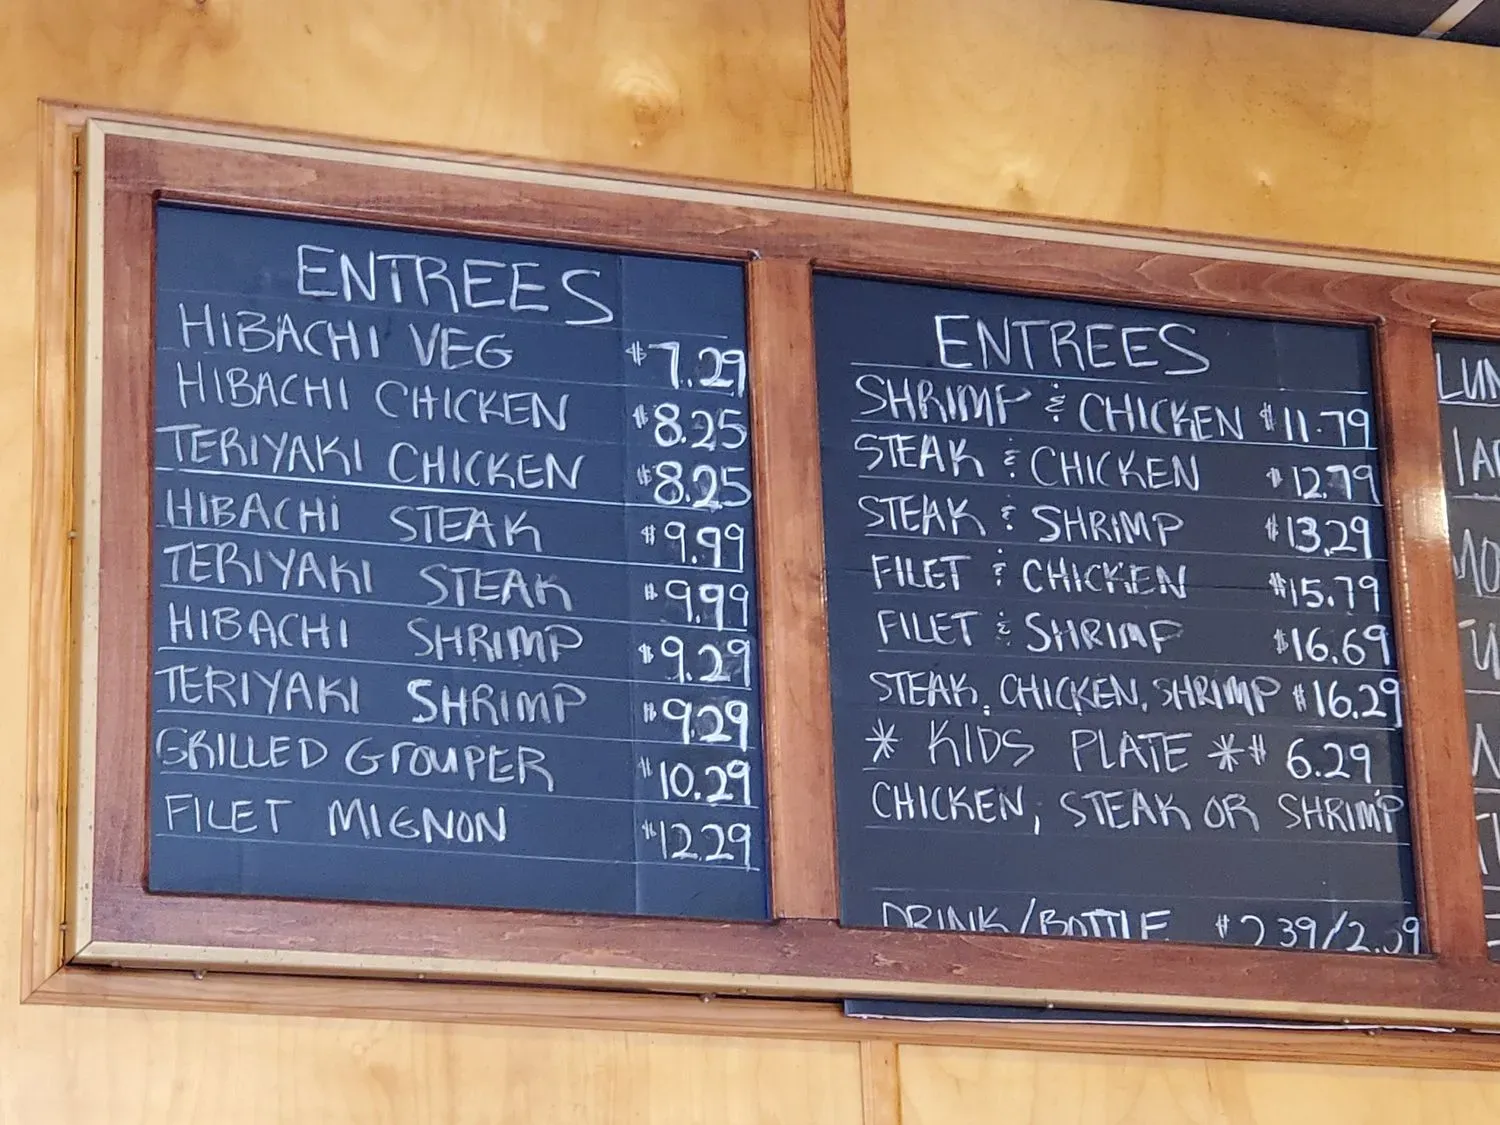 ENTREES
HIBACHI VEG $7.29
HIBACHI CHICKEN $8.25
TERIYAKI CHICKEN $8.25
HIBACHI STEAK $9.99
TERIYAKI STEAK $9.99
HIBACHI SHRIMP $9.29
TERIYAKI SHRIMP $9.29
GRILLED GROUPER $10.29
FILET MIGNON $12.29
ENTREES
SHRIMP & CHICKEN $11.79
STEAK & CHICKEN $12.79
STEAK & SHRIMP $13.29
FILET & CHICKEN $15.79
FILET & SHRIMP $16.69
STEAK, CHICKEN, SHRIMP $16.29
* KIDS PLATE * $6.29
CHICKEN, STEAK OR SHRIMP
DRINK/BOTTLE $2.39/
LUN